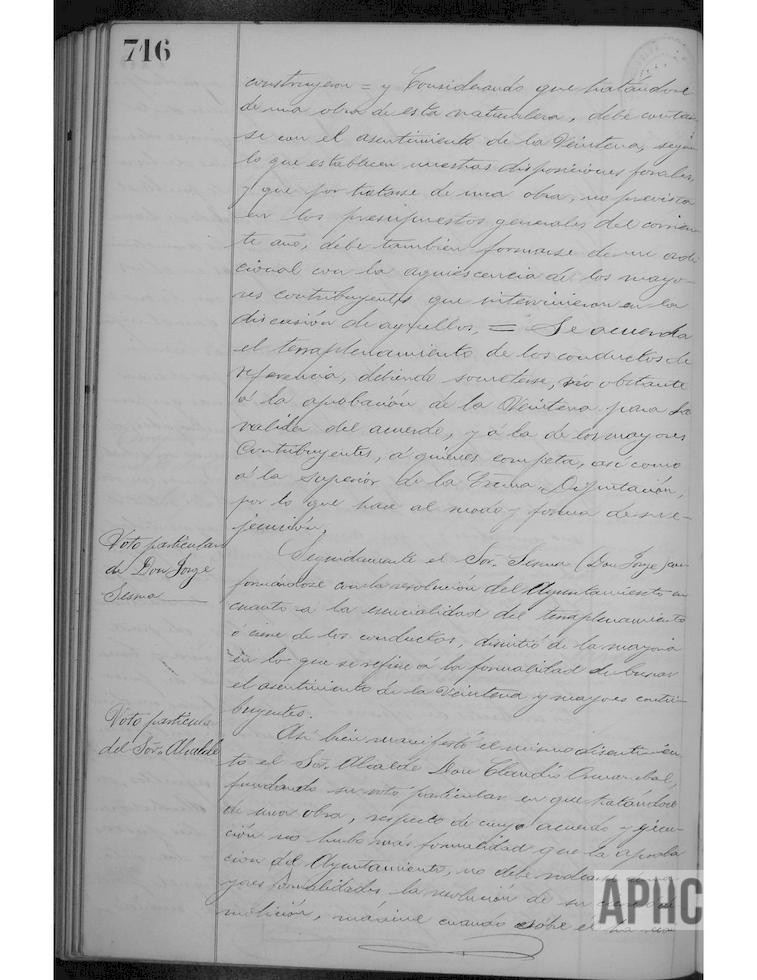 746
construyeron = y Considerando que tratandose
de una obra de esta naturaleza, debe contar
se con el asentimiento de la Veintena, según
lo que establecen nuestras disposiciones forales,
y que por tratarse de una obra, no prevista
en los presupuestos generales del corrien
te año, debe tambien formarse de un adi
cional con la aquiescencia de los mayo-
res contribuyentes que intervinieron en la
discusión de aquellos. = Se acuerda
el terraplenamiento de los conductos de
referencia, debiendo someterse, no obstante
á la aprobación de la Veintena para la
validez del acuerdo, y á la de los mayores
Contribuyentes, á quienes competa, así como
á la superior de la Excma. Diputación,
por lo que hace al modo y forma de su e-
jecución.
Voto particular
de Don Jorge
Sesma
Seguidamente el Sor. Sesma (Don Jorge) con
formándose con la resolución del Ayuntamiento en
cuanto á la esencialidad del terraplenamiento
ó cierre de los conductos, disintió de la mayoria
en lo que se refiere á la formalidad de buscar
el asentimiento de la Veintena y mayores contri-
buyentes.
Voto particular
del Sor. Alcalde
Asi bien manifestó el mismo disentimien
to el Sor. Alcalde Don Claudio
fundando su voto particular en que tratándose
de una obra, respecto de cuyo acuerdo y ejecu-
ción no hubo más formalidad que la aproba
ción del Ayuntamiento, no debe
yores formalidades la resolución de su
molición, máxime cuando sobre el
APHC